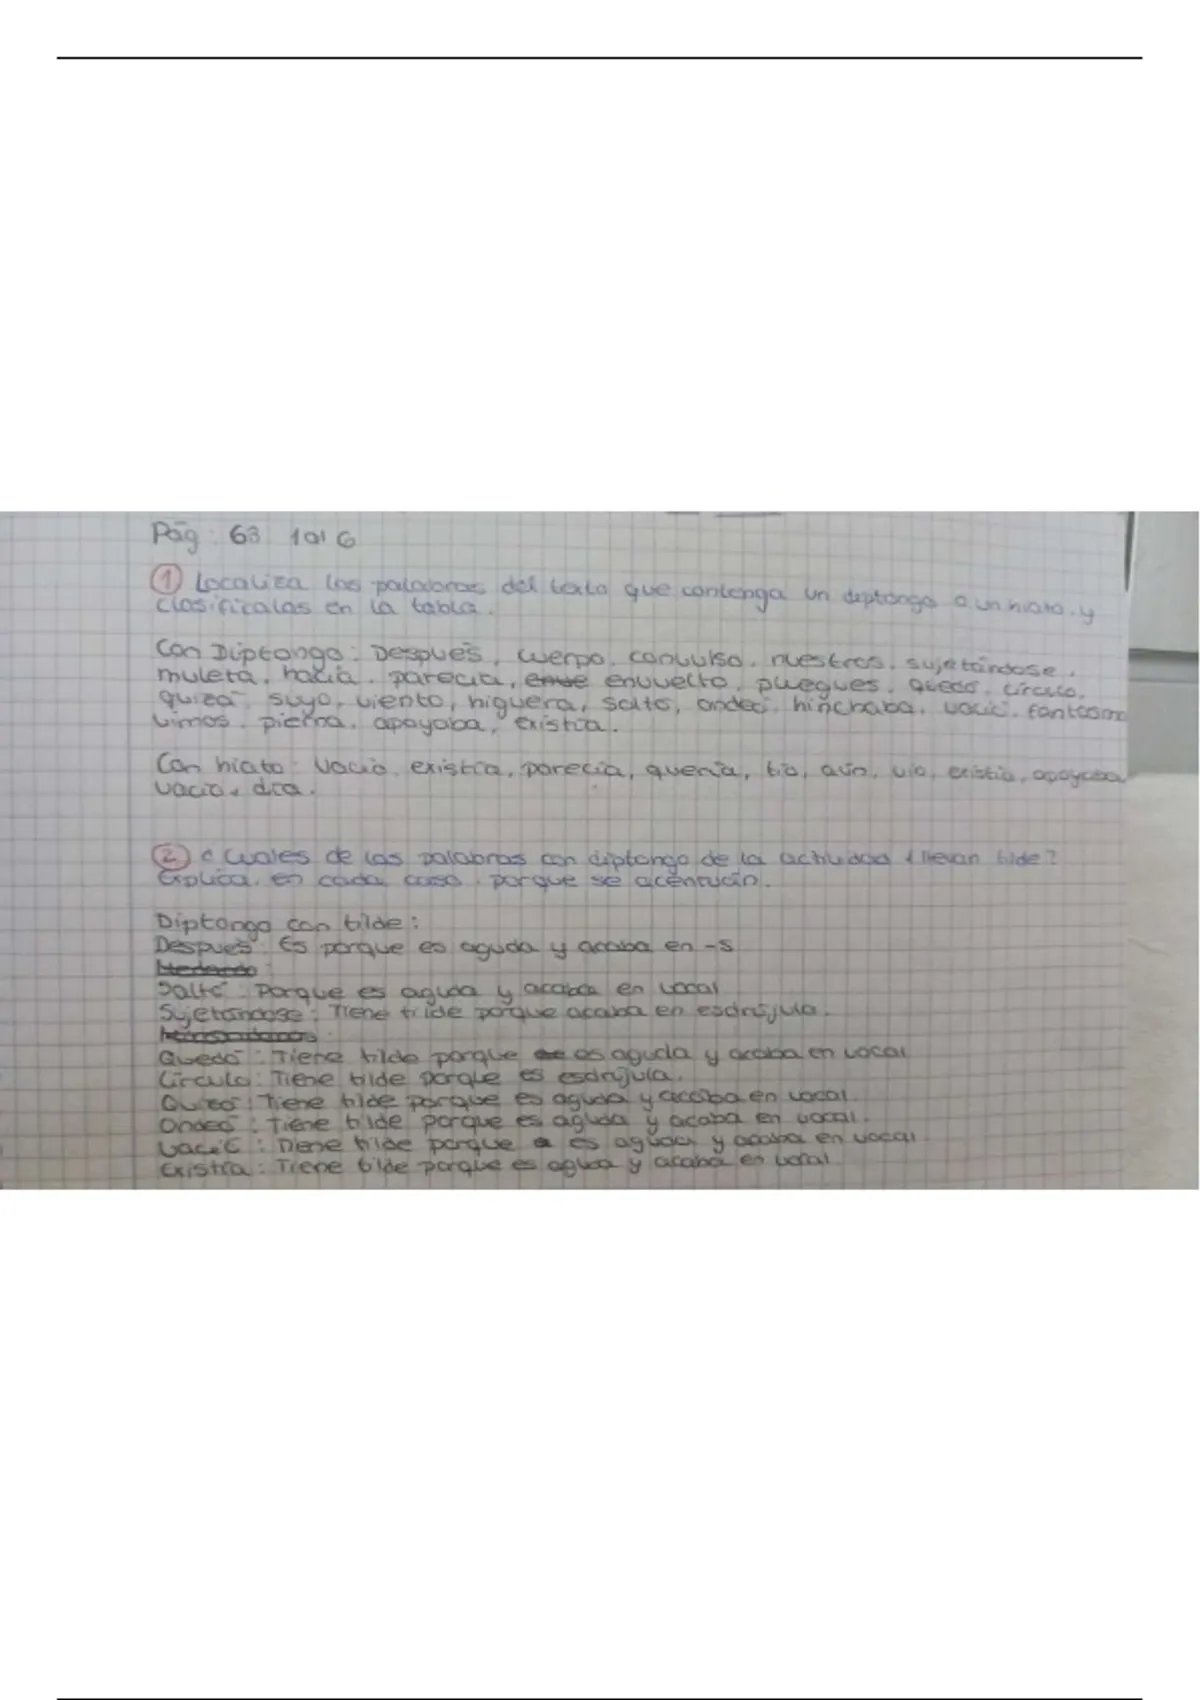 Pág: 63 1 al 6
① Localiza las palabras del texto que contenga un diptongo o un hiato, y
clasificalas en la tabla.
Con Diptongo: Después, cuerpo, convulso, nuestros, sujetándose,
muleta, hacia, parecía, envuelto, pliegues, quedó, círculo,
quizá, suyo, viento, higuera, saltó, ondeó, hinchaba, vació, fantasma
vimos, pierna, apoyaba, existía.
Con hiato: Vacío, existía, parecía, quería, tío, aún, vio, existía, apoyaba
vacío, día.
② ¿Cuales de las palabras con diptongo de la actividad 1 llevan tilde?
Explica, en cada caso, porque se acentúan.
Diptongo con tilde:
Después: Es porque es aguda y acaba en -s
Saltó: Porque es aguda y acaba en vocal
Sujetándose: Tiene tilde porque acaba en esdrújula.
Quedó: Tiene tilde porque es aguda y acaba en vocal
Círculo: Tiene tilde porque es esdrújula.
Quizá: Tiene tilde porque es aguda y acaba en vocal.
Ondeó: Tiene tilde porque es aguda y acaba en vocal.
Vació: Tiene tilde porque es aguda y acaba en vocal
Existía: Tiene tilde porque es aguda y acaba en vocal